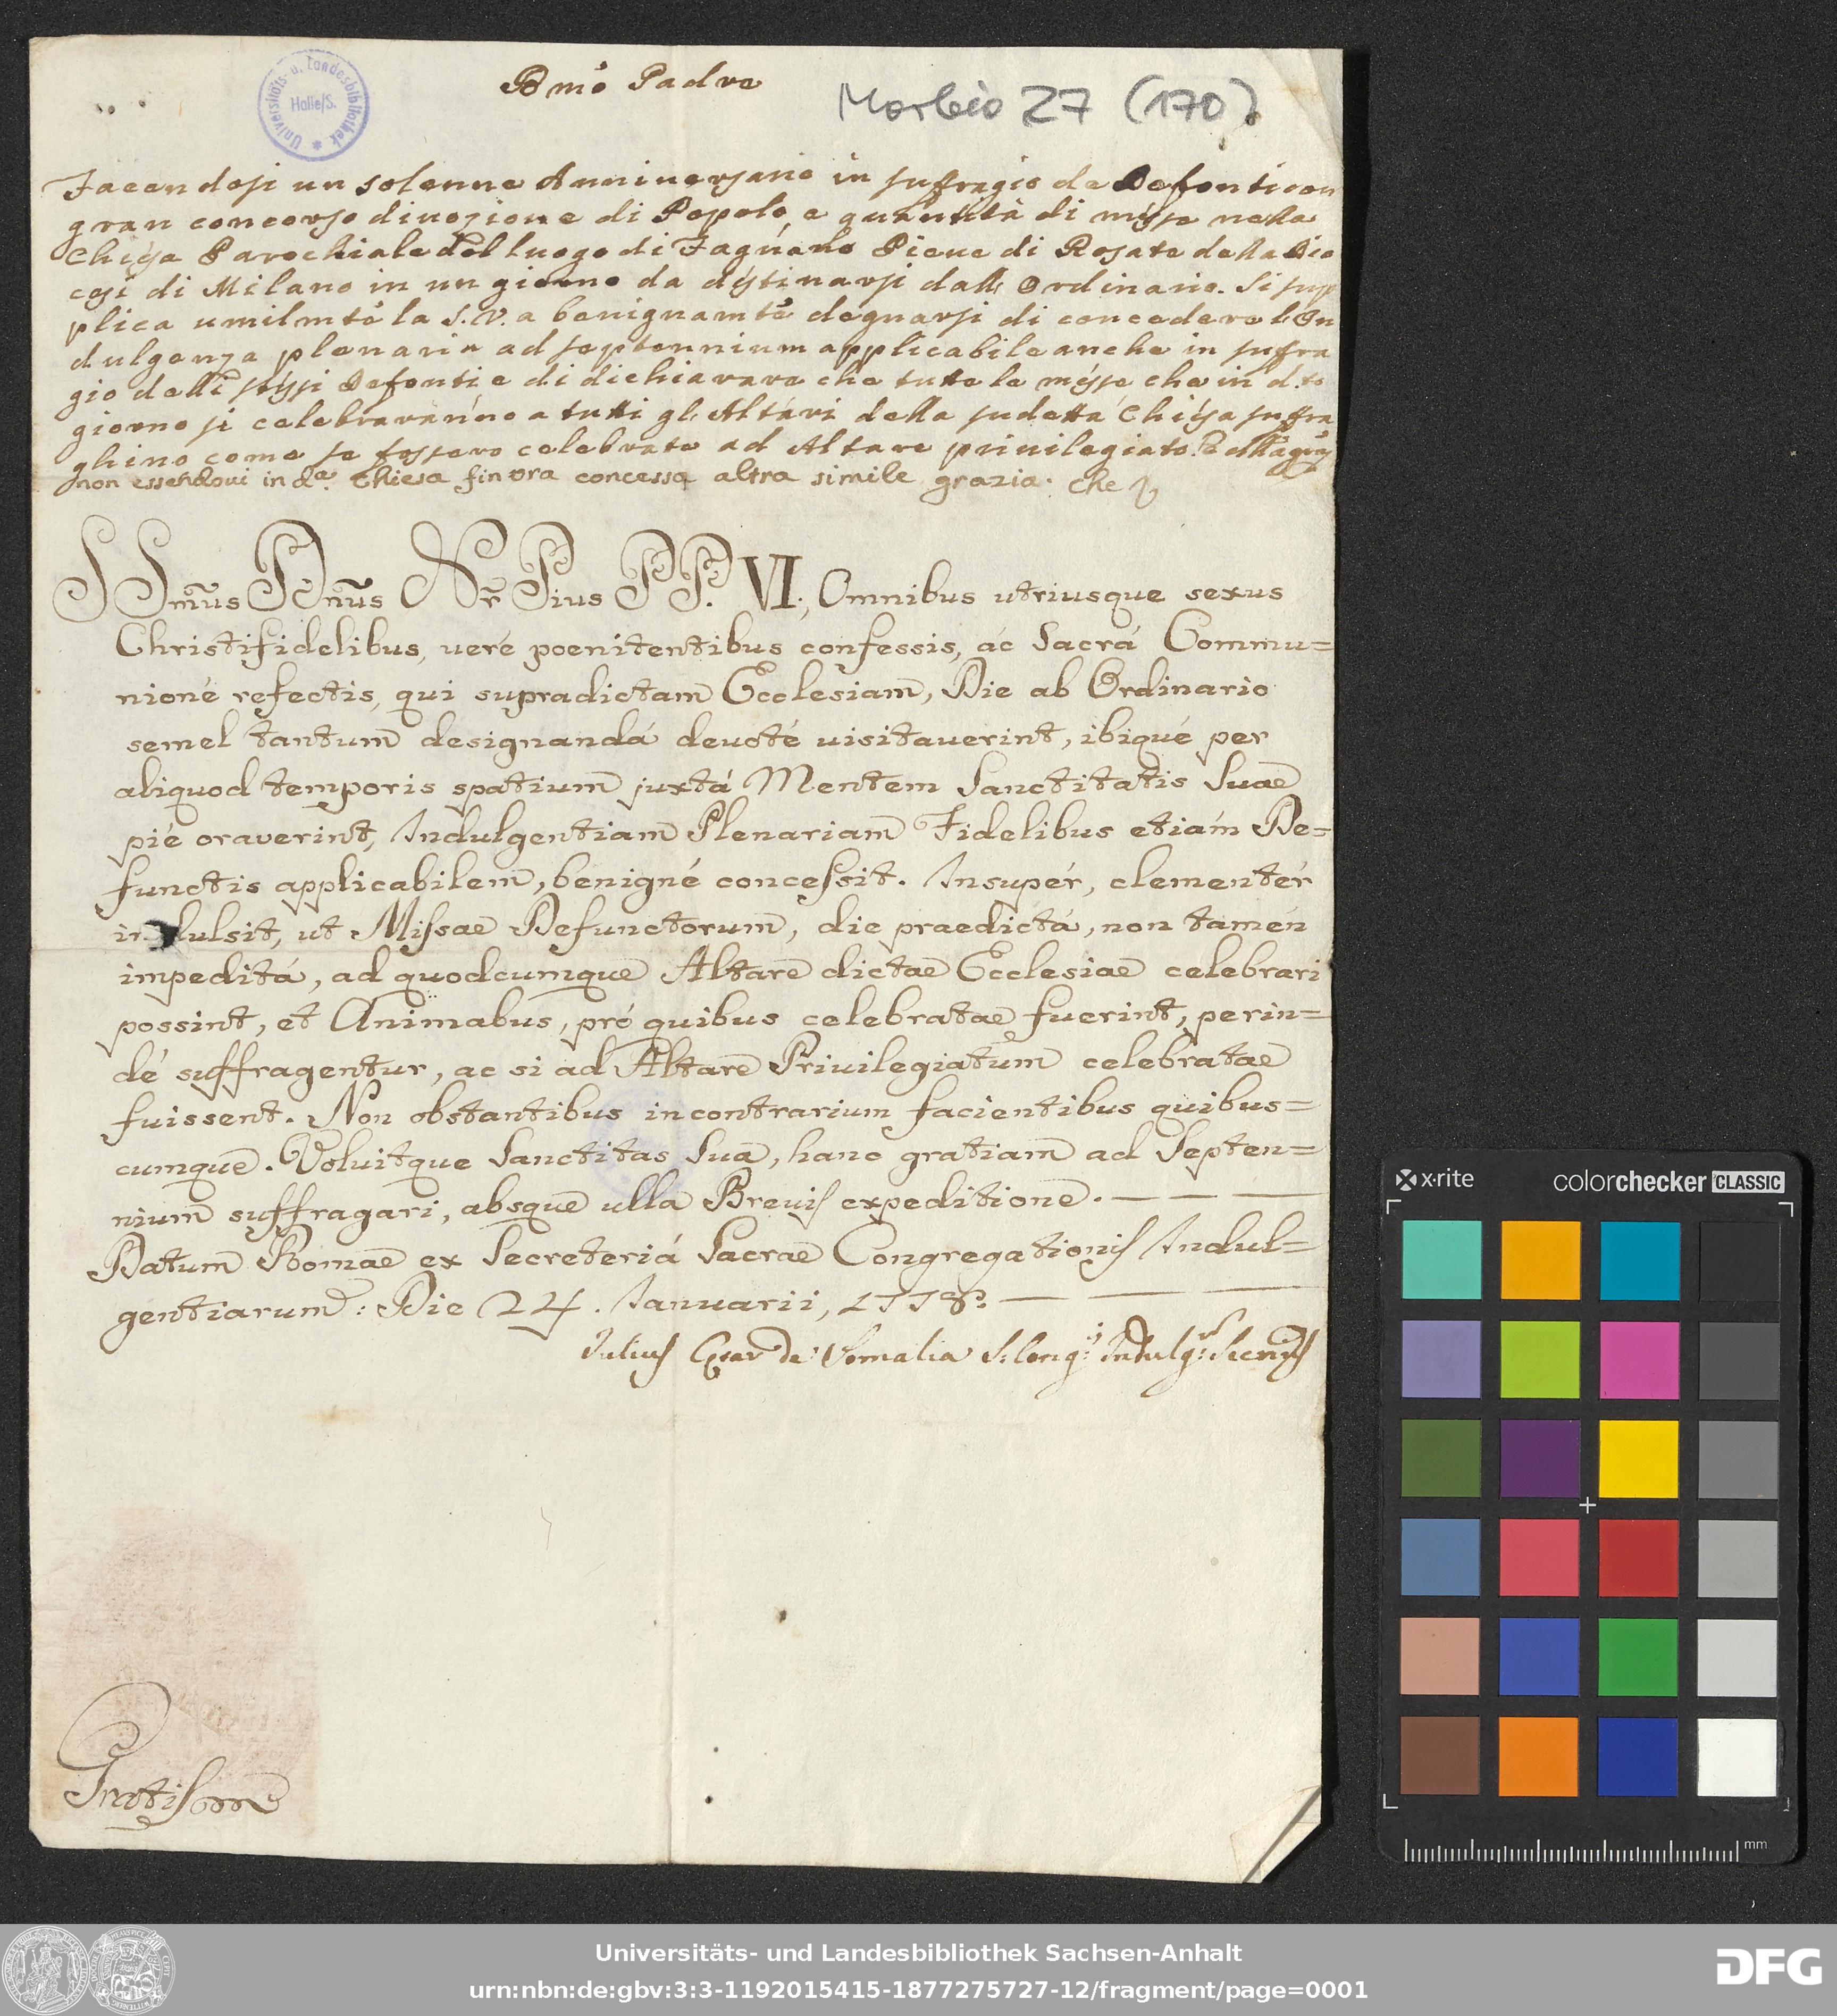 Bmo Padre
Morbio 27 (170)
Universitäts- u. Landesbibliothek
Halle/S.
Facendosi un solenne Anniversario in suffragio de Defonti con
gran concorso divozione di Popolo, e quantità di messe nella
Chiesa Parochiale del luogo di Fagnano Pieve di Rosate della Dio
cesi di Milano in un giorno da destinarsi dall' Ordinario. Si sup
plica umilmte la S.V. a benignamte degnarsi di concedere l'In
dulgenza plenaria ad septennium applicabile anche in suffra
gio delli stessi Defonti e di dichiarare che tutte le messe che in d.to
giorno si celebraranno a tutti gl'Altari della sudetta Chiesa suffra
ghino come se fossero celebrate ad Altare privilegiato.
non essendovi in da. Chiesa fin ora concessa altra simile grazia. Che
SSmus Dnus Nr Pius PP. VI., Omnibus utriusque sexus
Christifidelibus, veré poenitentibus confessis, ác Sacrá Commu=
nioné refectis, qui supradictam Ecclesiam, Die ab Ordinario
semel tantum designandá devoté visitaverint, ibiqué per
aliquod temporis spatium juxtá Mentem Sanctitatis Suae
pié oraverint, Indulgentiam Plenariam Fidelibus etiám De=
functis applicabilem, benigné concessit. Insupér, clementér
indulsit, ut Missae Defunctorum, die praedictá, non tamén
impeditá, ad quodcumque Altare dictae Ecclesiae celebrari
possint, et Animabus, pró quibus celebratae fuerint, perin=
dé suffragentur, ac si ad Altare Privilegiatum celebratae
fuissent. Non obstantibus in contrarium facientibus quibus=
cumque. Voluitque Sanctitas Sua, hanc gratiam ad Septen=
nium suffragari, absque ulla Brevis expeditione. — — —
Datum Romae ex Secreteriá Sacrae Congregationis Indul=
gentiarum: Die 24. Ianuarii, 1778. — — —
Julius Caesar de Somalia S. Cong:is Indulg: Secrius
x·rite
colorchecker CLASSIC
mm
Universitäts- und Landesbibliothek Sachsen-Anhalt
urn:nbn:de:gbv:3:3-1192015415-1877275727-12/fragment/page=0001
DFG